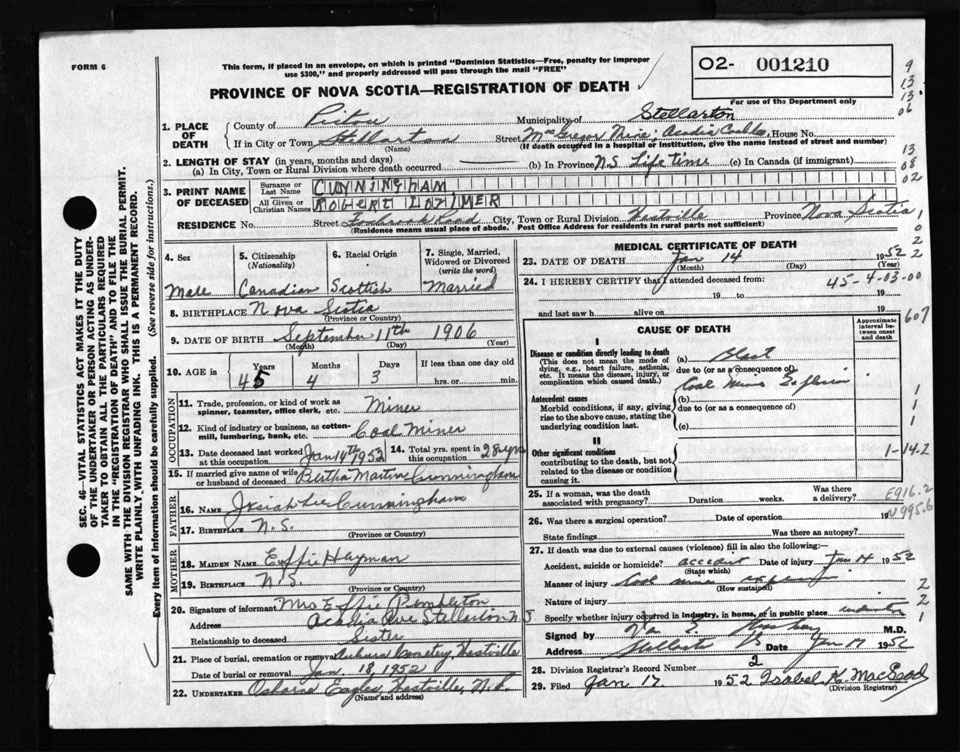 FORM 6
This form, if placed in an envelope, on which is printed "Dominion Statistics—Free, penalty for improper
use $300," and properly addressed will pass through the mail "FREE"
PROVINCE OF NOVA SCOTIA—REGISTRATION OF DEATH
O2- 001210
For use of the Department only
1. PLACE OF DEATH
County of Pictou Municipality of Stellarton
If in City or Town Stellarton Street McGregor Mine; Acadia House No.
(Name) (If death occurred in a hospital or institution, give the name instead of street and number)
2. LENGTH OF STAY (in years, months and days)
(a) In City, Town or Rural Division where death occurred (b) In Province N.S. Life time (c) In Canada (if immigrant)
3. PRINT NAME OF DECEASED
Surname or Last Name CUNNINGHAM,
All Given or Christian Names ROBERT LORIMER
RESIDENCE No. Street Foxbrook Road City, Town or Rural Division Westville Province Nova Scotia
(Residence means usual place of abode. Post Office Address for residents in rural parts not sufficient)
4. Sex Male
5. Citizenship (Nationality) Canadian
6. Racial Origin Scottish
7. Single, Married, Widowed or Divorced (write the word) Married
8. BIRTHPLACE Nova Scotia
(Province or Country)
9. DATE OF BIRTH September 11th 1906
(Month) (Day) (Year)
10. AGE in Years 45 Months 4 Days 3 If less than one day old
hrs. or min.
OCCUPATION
11. Trade, profession, or kind of work as spinner, teamster, office clerk, etc. Miner
12. Kind of industry or business, as cotton-mill, lumbering, bank, etc. Coal Miner
13. Date deceased last worked at this occupation Jan 14th 1952
14. Total yrs. spent in this occupation 28 yrs
15. If married give name of wife or husband of deceased Bertha Martin Cunningham
FATHER
16. NAME Josiah Lee Cunningham
17. BIRTHPLACE N.S.
(Province or Country)
MOTHER
18. MAIDEN NAME Effie Hayman
19. BIRTHPLACE N.S.
(Province or Country)
20. Signature of informant Mrs Effie Pembleton
Address Acadia Ave Stellarton N.S
Relationship to deceased Sister
21. Place of burial, cremation or removal Auburn Cemetery, Westville
Date of burial or removal Jan. 18, 1952
22. UNDERTAKER Osborne Eagles, Westville, N.S.
(Name and address)
MEDICAL CERTIFICATE OF DEATH
23. DATE OF DEATH Jan 14 1952
(Month) (Day) (Year)
24. I HEREBY CERTIFY that I attended deceased from:
19 to 19
and last saw h alive on 19
45-4-03-00
607
CAUSE OF DEATH
Approximate interval between onset and death
I
Disease or condition directly leading to death
(This does not mean the mode of dying, e.g., heart failure, asthenia, etc. It means the disease, injury, or complication which caused death.)
(a) Blast
due to (or as a consequence of)
Coal Mine Explosion
Antecedent causes
Morbid conditions, if any, giving rise to the above cause, stating the underlying condition last.
(b)
due to (or as a consequence of)
(c)
II
Other significant conditions
contributing to the death, but not related to the disease or condition causing it.
1-14.2
25. If a woman, was the death associated with pregnancy? Duration weeks. Was there a delivery?
E916.2
N995.6
26. Was there a surgical operation? Date of operation 19
State findings Was there an autopsy?
27. If death was due to external causes (violence) fill in also the following:
Accident, suicide or homicide? accident Date of injury Jan 14 1952
(State which)
Manner of injury Coal mine explosion
(How sustained)
Nature of injury
Specify whether injury occurred in industry, in home, or in public place industry
Signed by M.D.
Address Stellarton NS Date Jan 17 1952
28. Division Registrar's Record Number 2
29. Filed Jan 17 1952 Isabel K. MacLeod
(Division Registrar)
SEC. 46—VITAL STATISTICS ACT MAKES IT THE DUTY
OF THE UNDERTAKER OR PERSON ACTING AS UNDER-
TAKER TO OBTAIN ALL THE PARTICULARS REQUIRED
IN THE "REGISTRATION OF DEATH" AND TO FILE THE
SAME WITH THE DIVISION REGISTRAR WHO SHALL ISSUE THE BURIAL PERMIT.
WRITE PLAINLY WITH UNFADING INK. THIS IS A PERMANENT RECORD.
Every item of information should be carefully supplied. (See reverse side for instructions.)
9
13
13
06
13
08
02
1
0
2
2
1
1
1
2
2
1